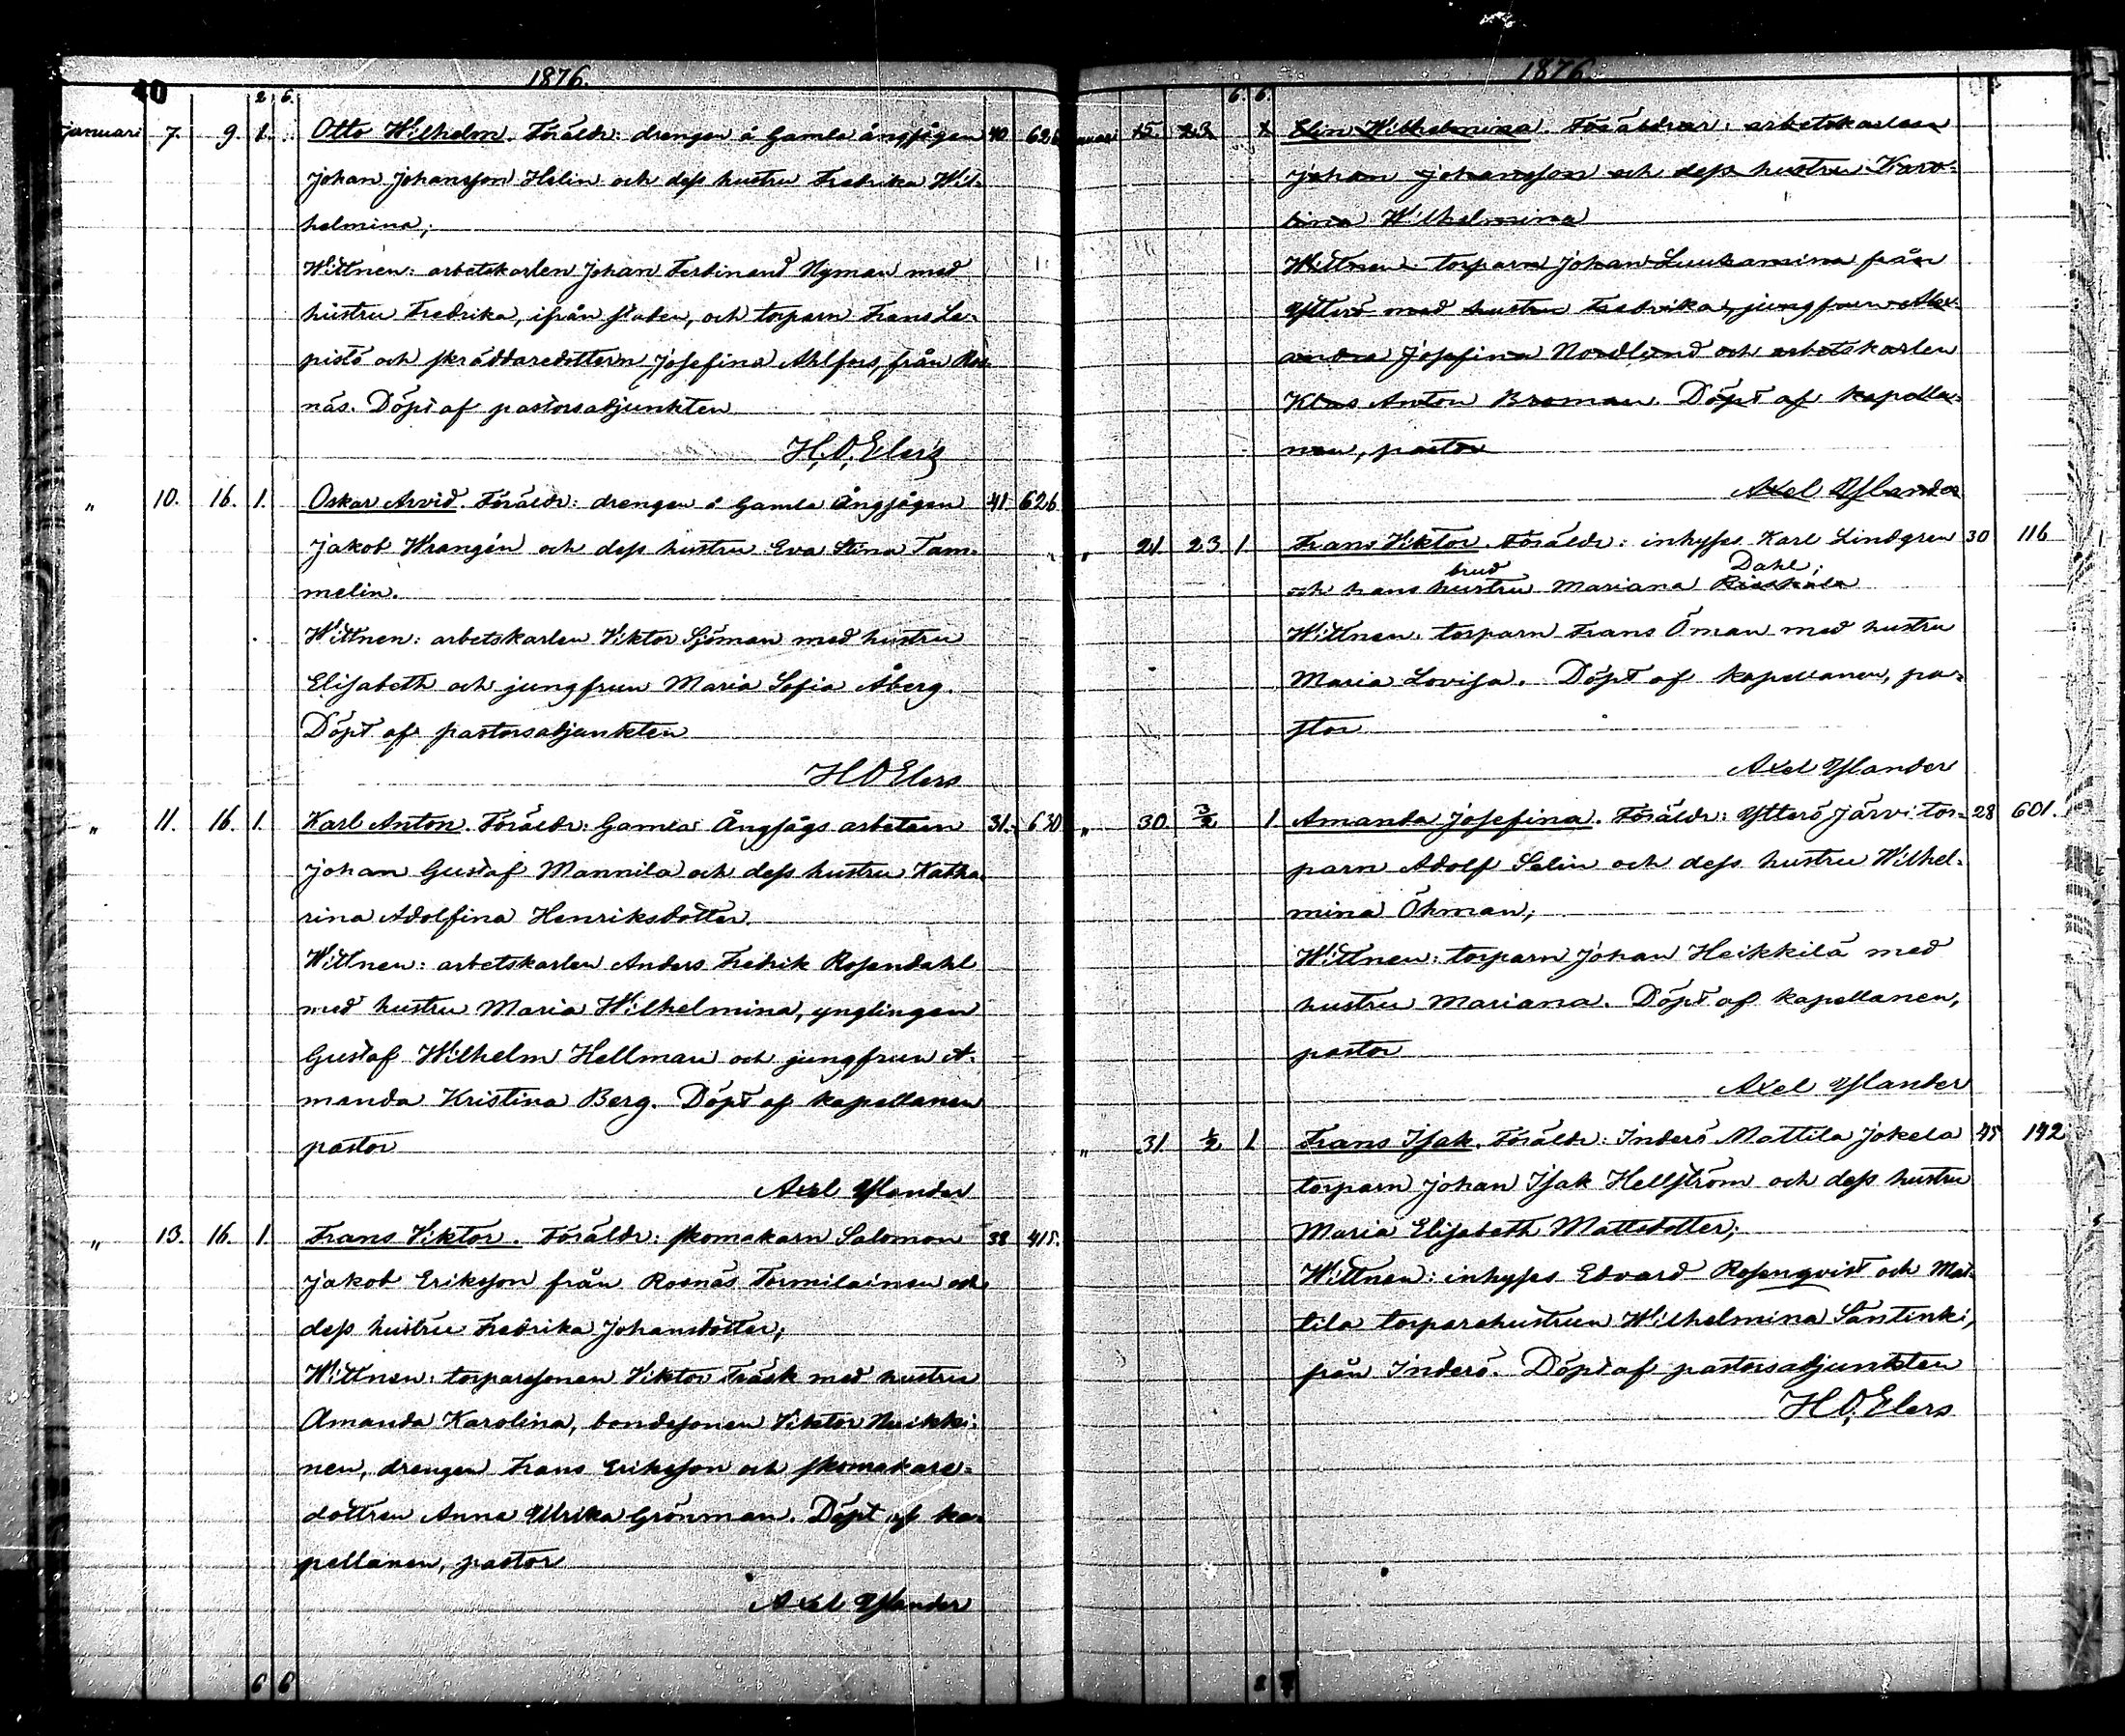 40
1876.
2 6.
Januari 7. 9. 1. Otto Wilhelm. Föräldr: drengen å Gamla ångsågen 40 626
Johan Johansson Helin och dess hustru Fredrika Wil-
helmina;
Wittnen: arbetskarlen Johan Ferdinand Nyman med
hustru Fredrika, ifrån staden, och torparn Frans Le-
pistö och skräddaredottern Josefina Ahlfors, från Ros-
näs. Döpt af pastorsadjunkten
H. O. Elers
" 10. 16. 1. Oskar Arvid. Föräldr: drengen å Gamla Ångsågen 41 626
Jakob Wrangén och dess hustru Eva Stina Tam-
melin.
Wittnen: arbetskarlen Viktor Sjöman med hustru
Elisabeth och jungfrun Maria Sofia Åberg.
Döpt af pastorsadjunkten
H O Elers
" 11. 16. 1. Karl Anton. Föräldr: Gamla Ångsågs arbetarn 31. 630
Johan Gustaf Mannila och dess hustru Katha-
rina Adolfina Henriksdotter.
Wittnen: arbetskarlen Anders Fredrik Rosendahl
med hustru Maria Wilhelmina, ynglingen
Gustaf Wilhelm Hellman och jungfrun A-
manda Kristina Berg. Döpt af kapellanen
pastor
Axel Ylander
" 13. 16. 1. Frans Viktor. Föräldr: skomakarn Salomon 38 415.
Jakob Eriksson från Rosnäs Tormilainen och
dess hustru Fredrika Johansdotter;
Wittnen: torparesonen Viktor Träsk med hustru
Amanda Karolina, bondesonen Viktor Nuikki-
nen, drengen Frans Eriksson och skomakare-
dottren Anna Ulrika Grönman. Döpt af ka-
pellanen, pastor
Axel Ylander
6 6
1876.
6. 6.
15. 23 1 Elin Wilhelmina. Föräldrar: arbetskarlen
Johan Johansson och dess hustru Karo-
lina Wilhelmina
Wittnen: torparn Johan Luukamina från
Ytterö med hustru Fredrika, jungfrun Alex-
andra Josefina Nordlund och arbetskarlen
Klas Anton Broman. Döpt af kapella-
nen, pastor
Axel Ylander
" 21 23 1 Frans Viktor. Föräldr: inhyses Karl Lindgren 30 116
brud Dahl;
och hans hustru Mariana
Wittnen: torparn Frans Öman med hustru
Maria Lovisa. Döpt af kapellanen, pa-
stor
Axel Ylander
" 30. 3/2 1 Amanda Josefina. Föräldr: Ytterö Järvi tor- 28 601.
parn Adolf Selin och dess hustru Wilhel-
mina Öhman;
Wittnen: torparn Johan Heikkilä med
hustru Mariana. Döpt af kapellanen,
pastor
Axel Ylander
" 31. 1/2 1 Frans Isak. Föräldr: Inderö Mattila Jokela 45 142
torparn Johan Isak Hellström och dess hustru
Maria Elisabeth Mattsdotter;
Wittnen: inhyses Edvard Rosenqvist och Mat-
tila torparehustrun Wilhelmina Santinki,
från Inderö. Döpt af pastorsadjunkten
H. O. Elers